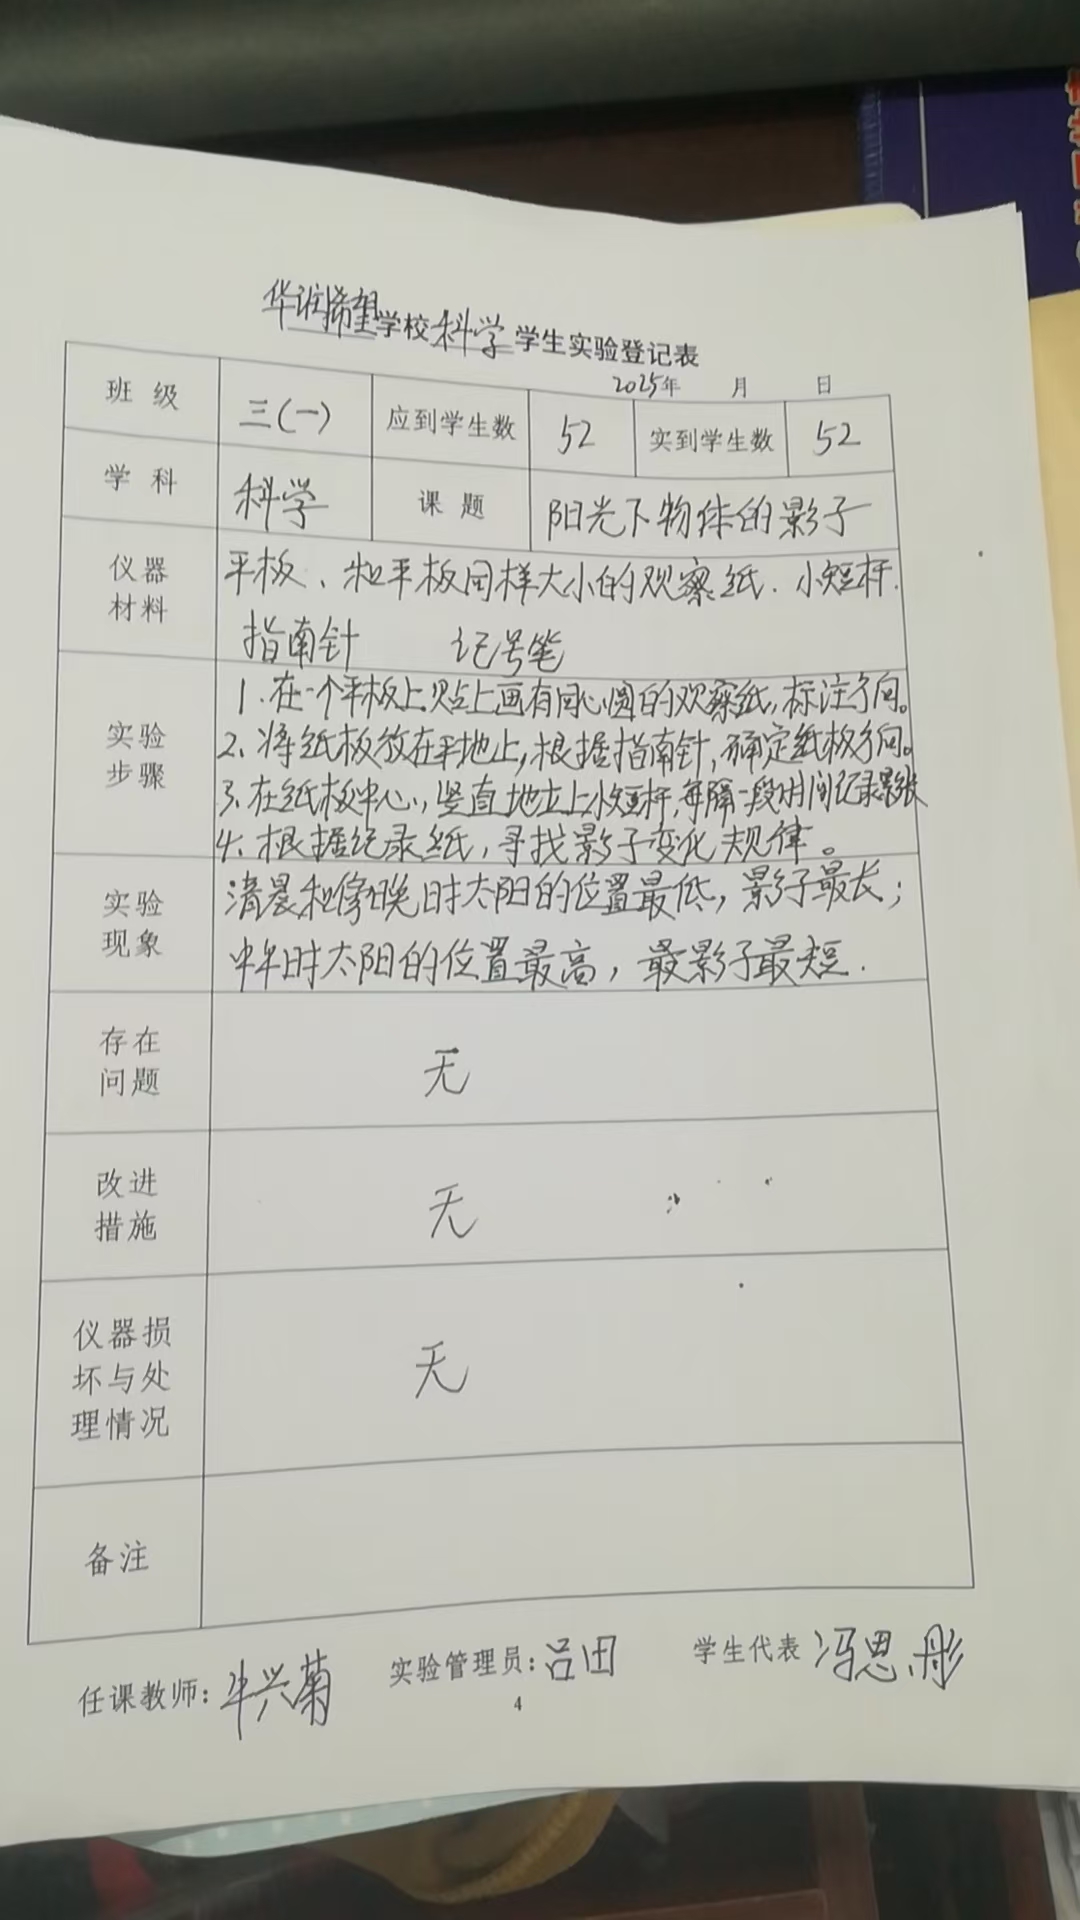 华润希望学校科学学生实验登记表
2025年 月 日
班级 三(一) 应到学生数 52 实到学生数 52
学科 科学 课题 阳光下物体的影子
仪器材料 平板、和平板同样大小的观察纸、小短杆、
指南针 记号笔
实验步骤 1.在一个平板上贴上画有同心圆的观察纸,标注方向。
2、将纸板放在平地上,根据指南针,确定纸板方向。
3、在纸板中心,竖直地立上小短杆,每隔一段时间记录影状
4、根据纪录纸,寻找影子变化规律。
实验现象 清晨和傍晚时太阳的位置最低,影子最长;
中午时太阳的位置最高,最影子最短.
存在问题 无
改进措施 无
仪器损坏与处理情况 无
备注
任课教师:牛兴菊 实验管理员:吕田 学生代表 冯思彤
4